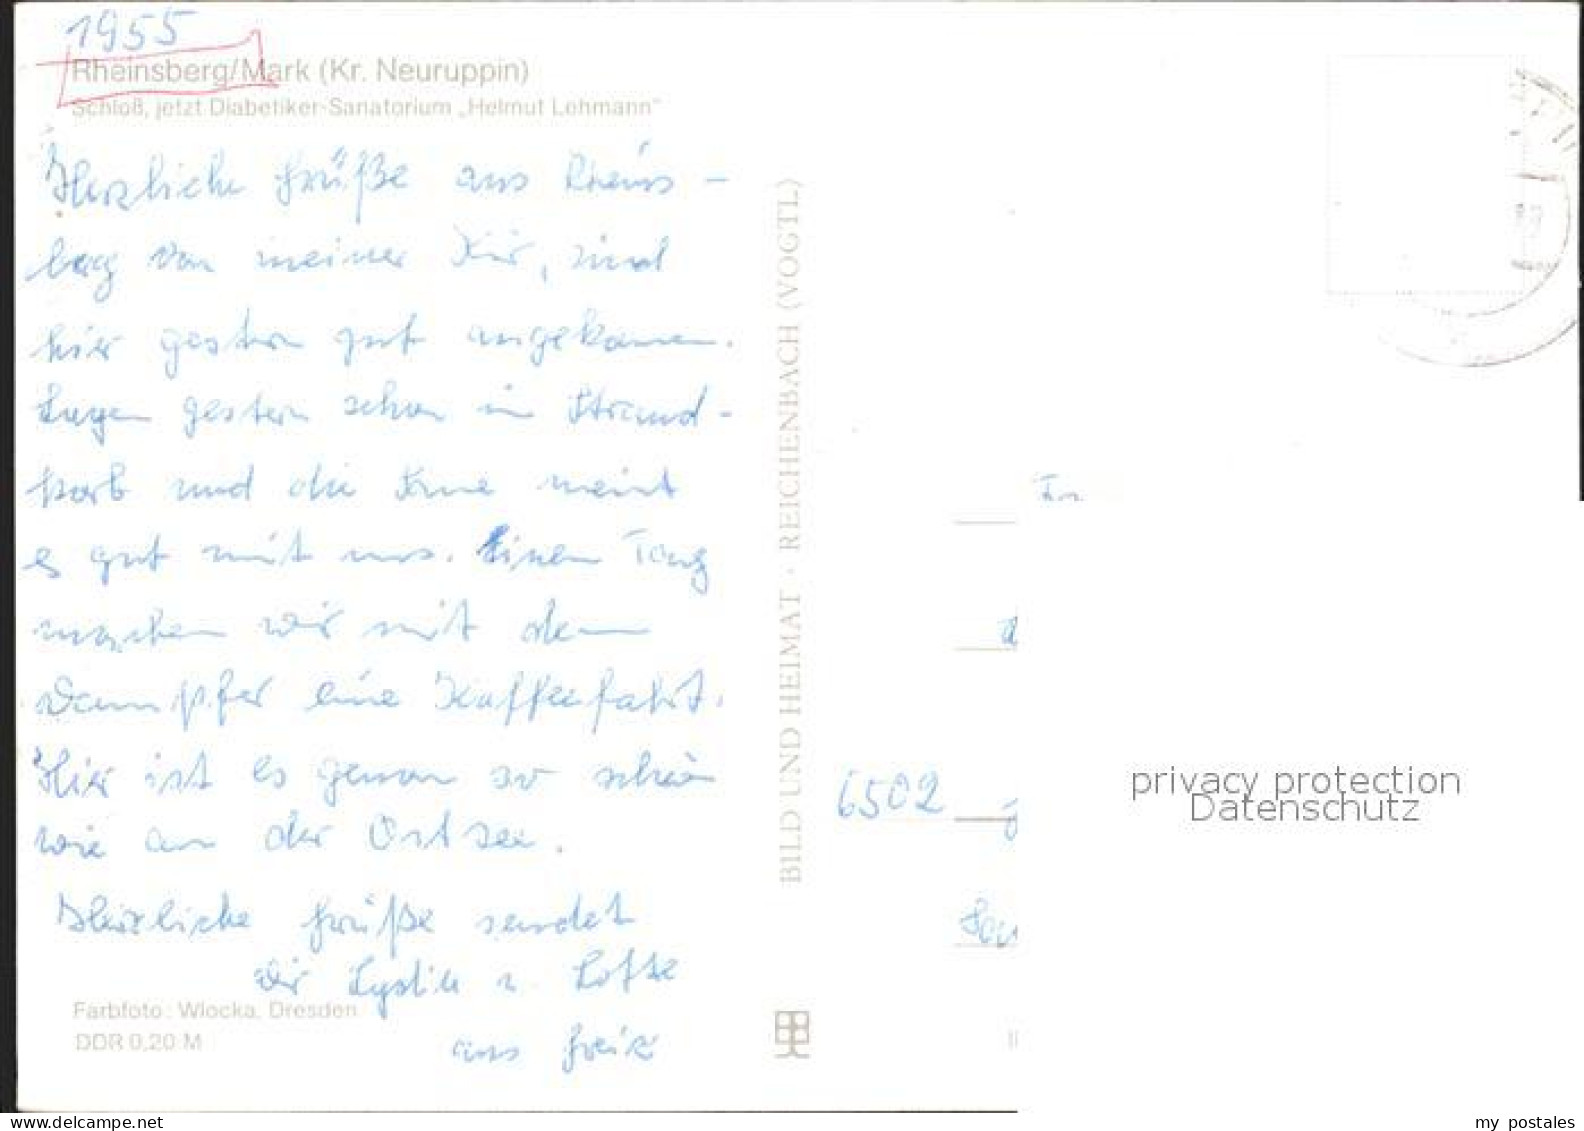 1955
Rheinsberg/Mark (Kr. Neuruppin)
Schloß, jetzt Diabetiker-Sanatorium „Helmut Lehmann"
Herzliche Grüße aus Rheins-
berg von meiner Kur, sind
hier gestern gut angekommen.
Lagen gestern schon im Strand-
korb und die Sonne meint
es gut mit uns. Einen Tag
machen wir mit dem
Dampfer eine Kaffeefahrt.
Hier ist es genau so schön
wie an der Ostsee.
Herzliche Grüße sendet
Dir u. Lotte
aus Greiz
Farbfoto: Wlocka, Dresden
DDR 0,20 M
BILD UND HEIMAT · REICHENBACH (VOGTL)
6502
privacy protection
Datenschutz
www.delcampe.net
my_postales